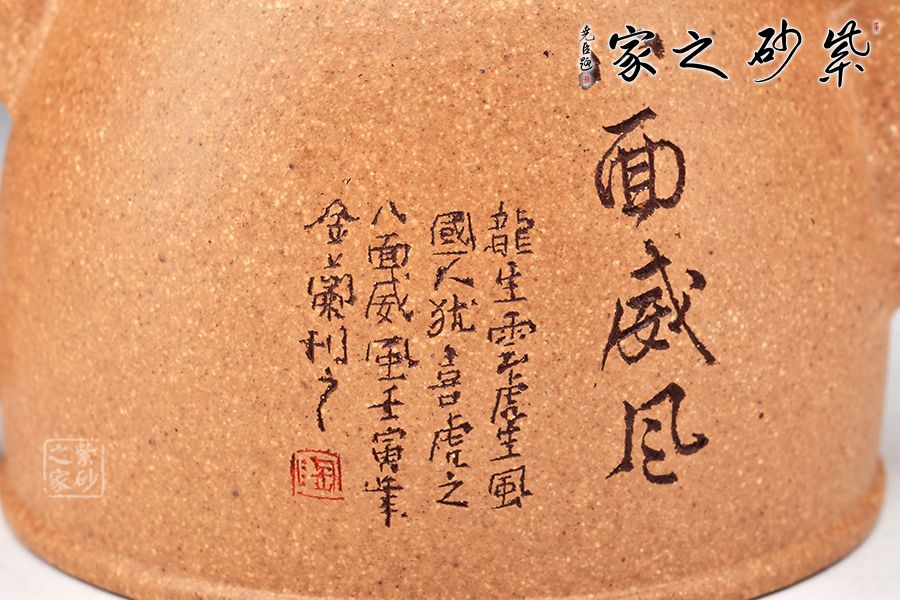 紫砂之家
堯臣題
面威风
龍生雲虎生風
國人犹喜虎之
八面威風壬寅
金蘭刊之
紫砂之家